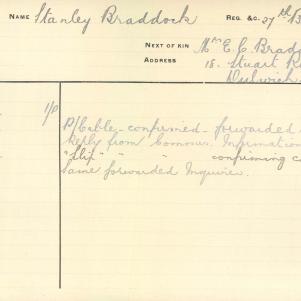 NAME Stanley Braddock REG. &C. 27th B
NEXT OF KIN Mrs E. C. Bradd
ADDRESS 18. Stuart R
Dulwich
1/P
P/Cable - confirmed - forwarded
Reply from Comous. Information
"Slip" " " confirming c
Same forwarded Inquirer.